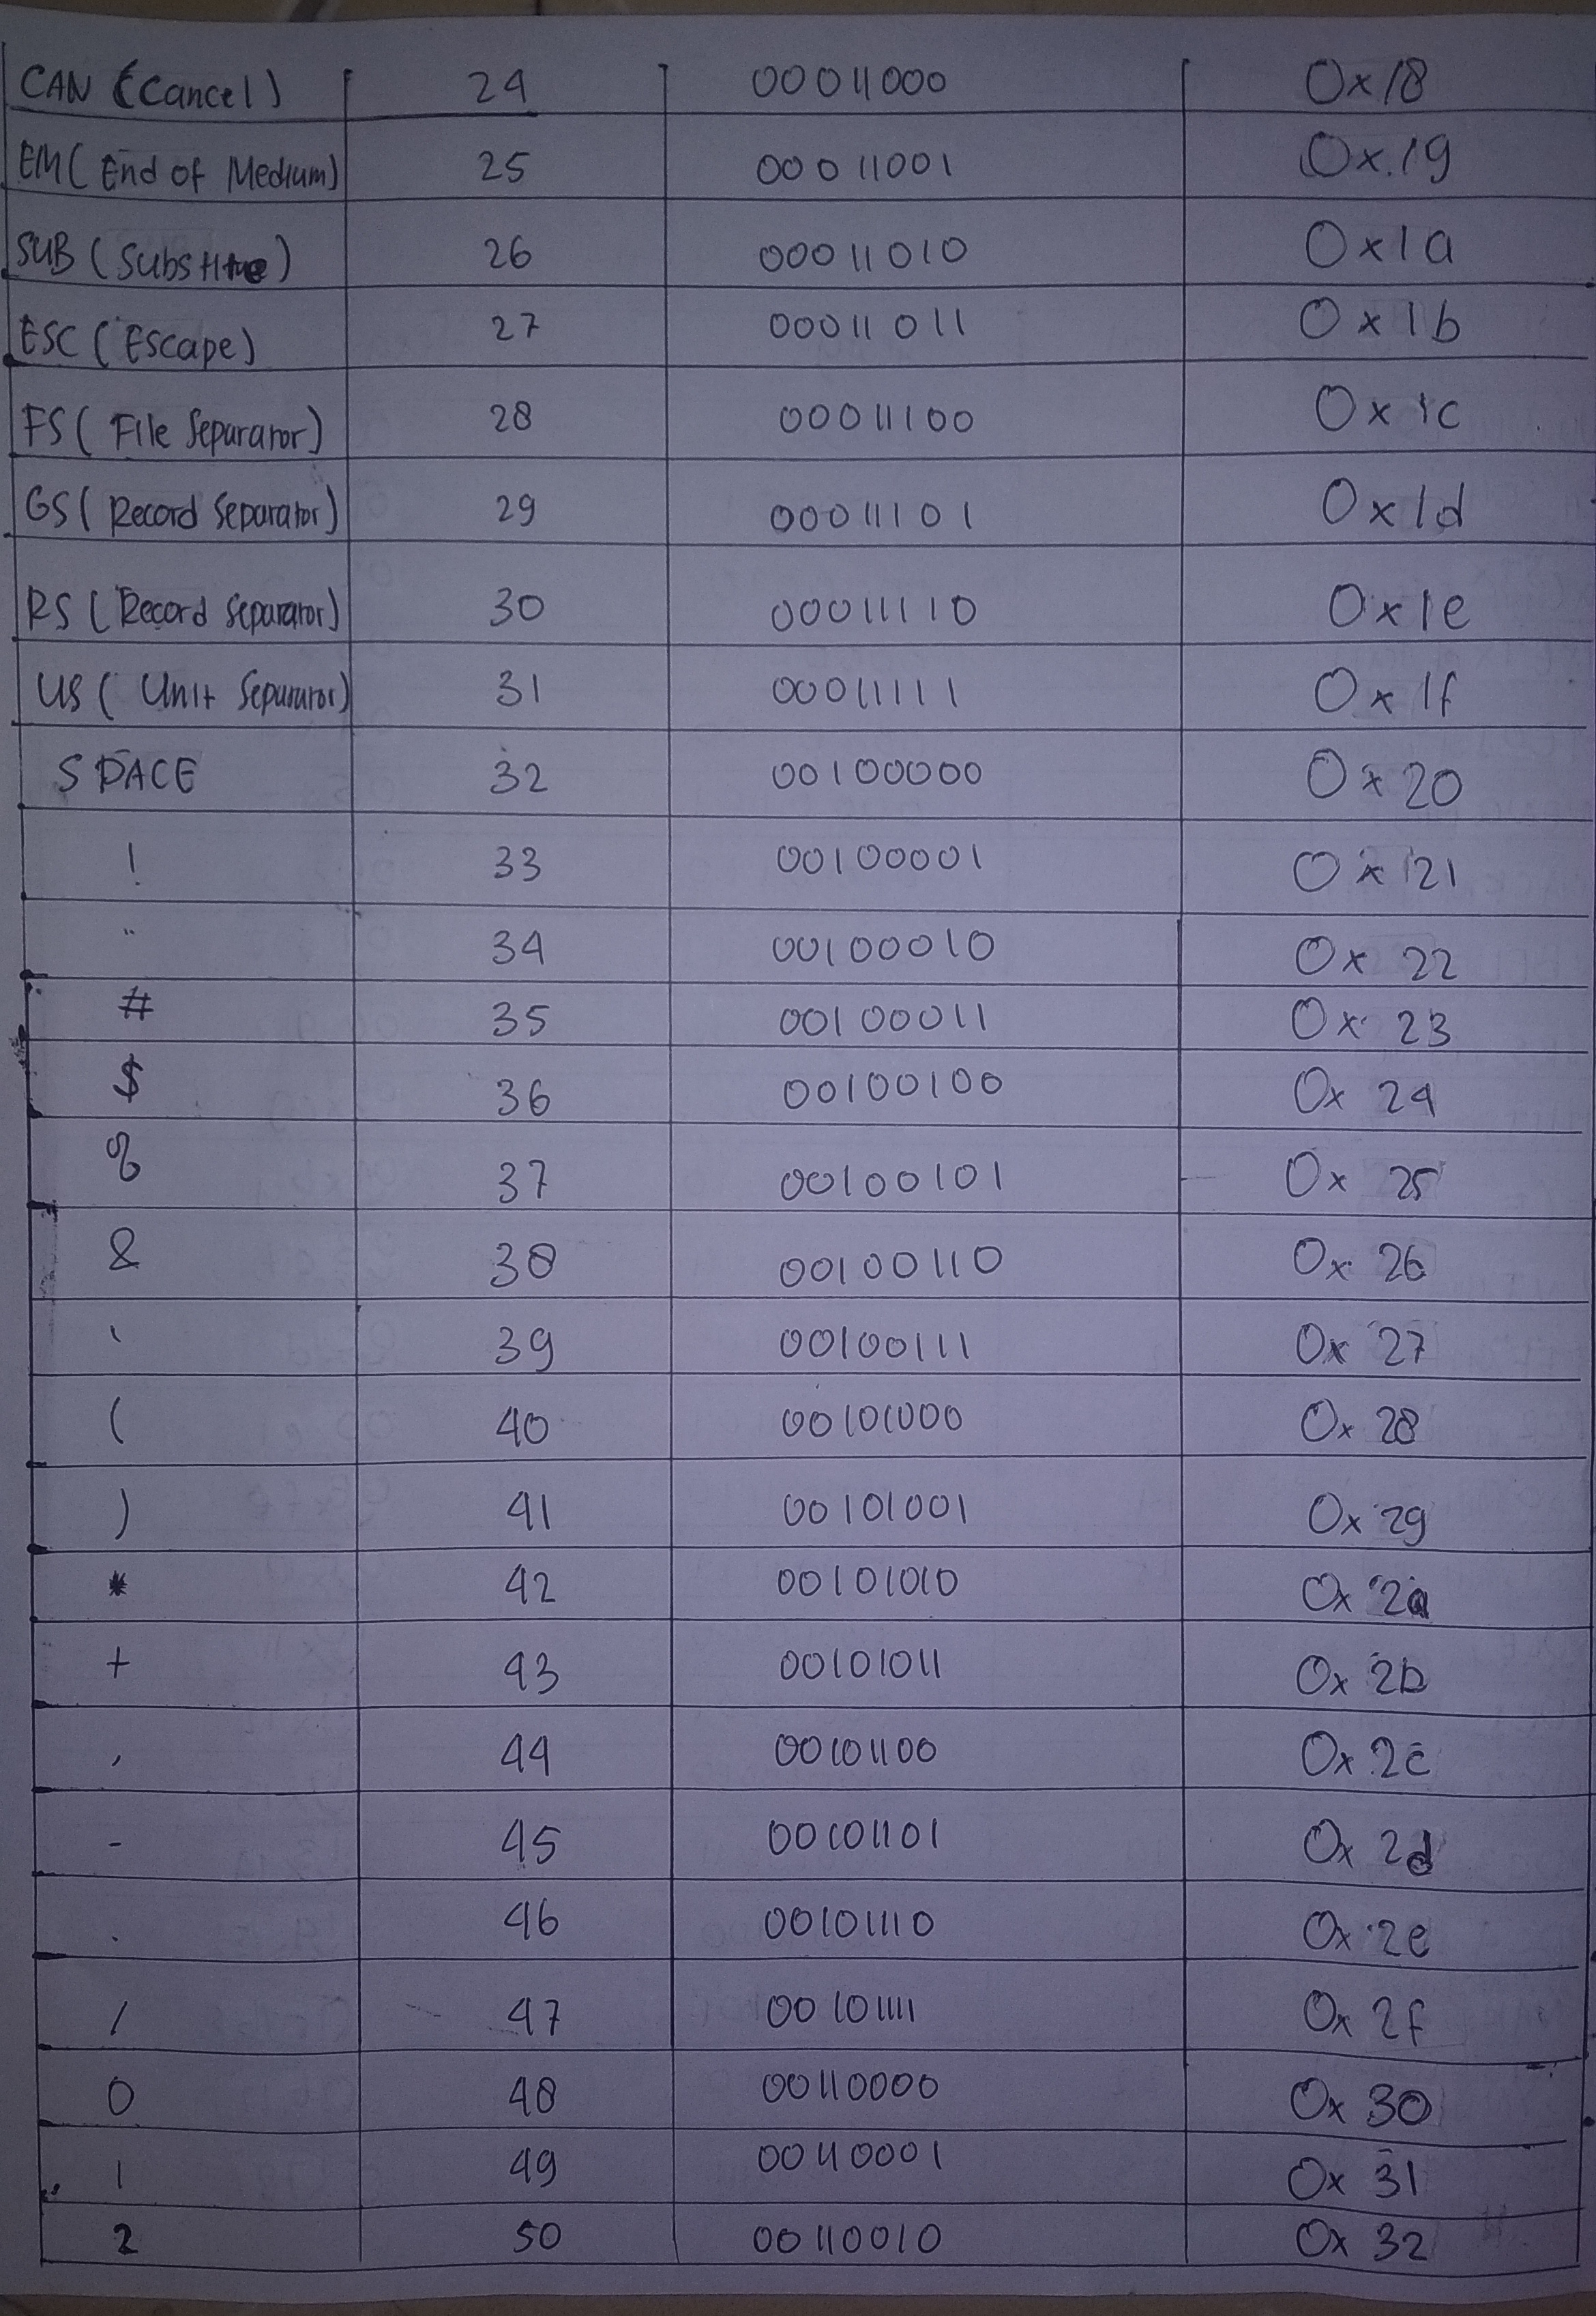 CAN (Cancel) 24 00011000 0x18
EM (End of Medium) 25 00011001 0x19
SUB (Substitue) 26 00011010 0x1a
ESC (Escape) 27 00011011 0x1b
FS (File Separator) 28 00011100 0x1c
GS (Record Separator) 29 00011101 0x1d
RS (Record Separator) 30 00011110 0x1e
US (Unit Separator) 31 00011111 0x1f
SPACE 32 00100000 0x20
! 33 00100001 0x21
" 34 00100010 0x22
# 35 00100011 0x23
$ 36 00100100 0x24
% 37 00100101 0x25
& 38 00100110 0x26
' 39 00100111 0x27
( 40 00101000 0x28
) 41 00101001 0x29
* 42 00101010 0x2a
+ 43 00101011 0x2b
, 44 00101100 0x2c
- 45 00101101 0x2d
. 46 00101110 0x2e
/ 47 00101111 0x2f
0 48 00110000 0x30
1 49 00110001 0x31
2 50 00110010 0x32